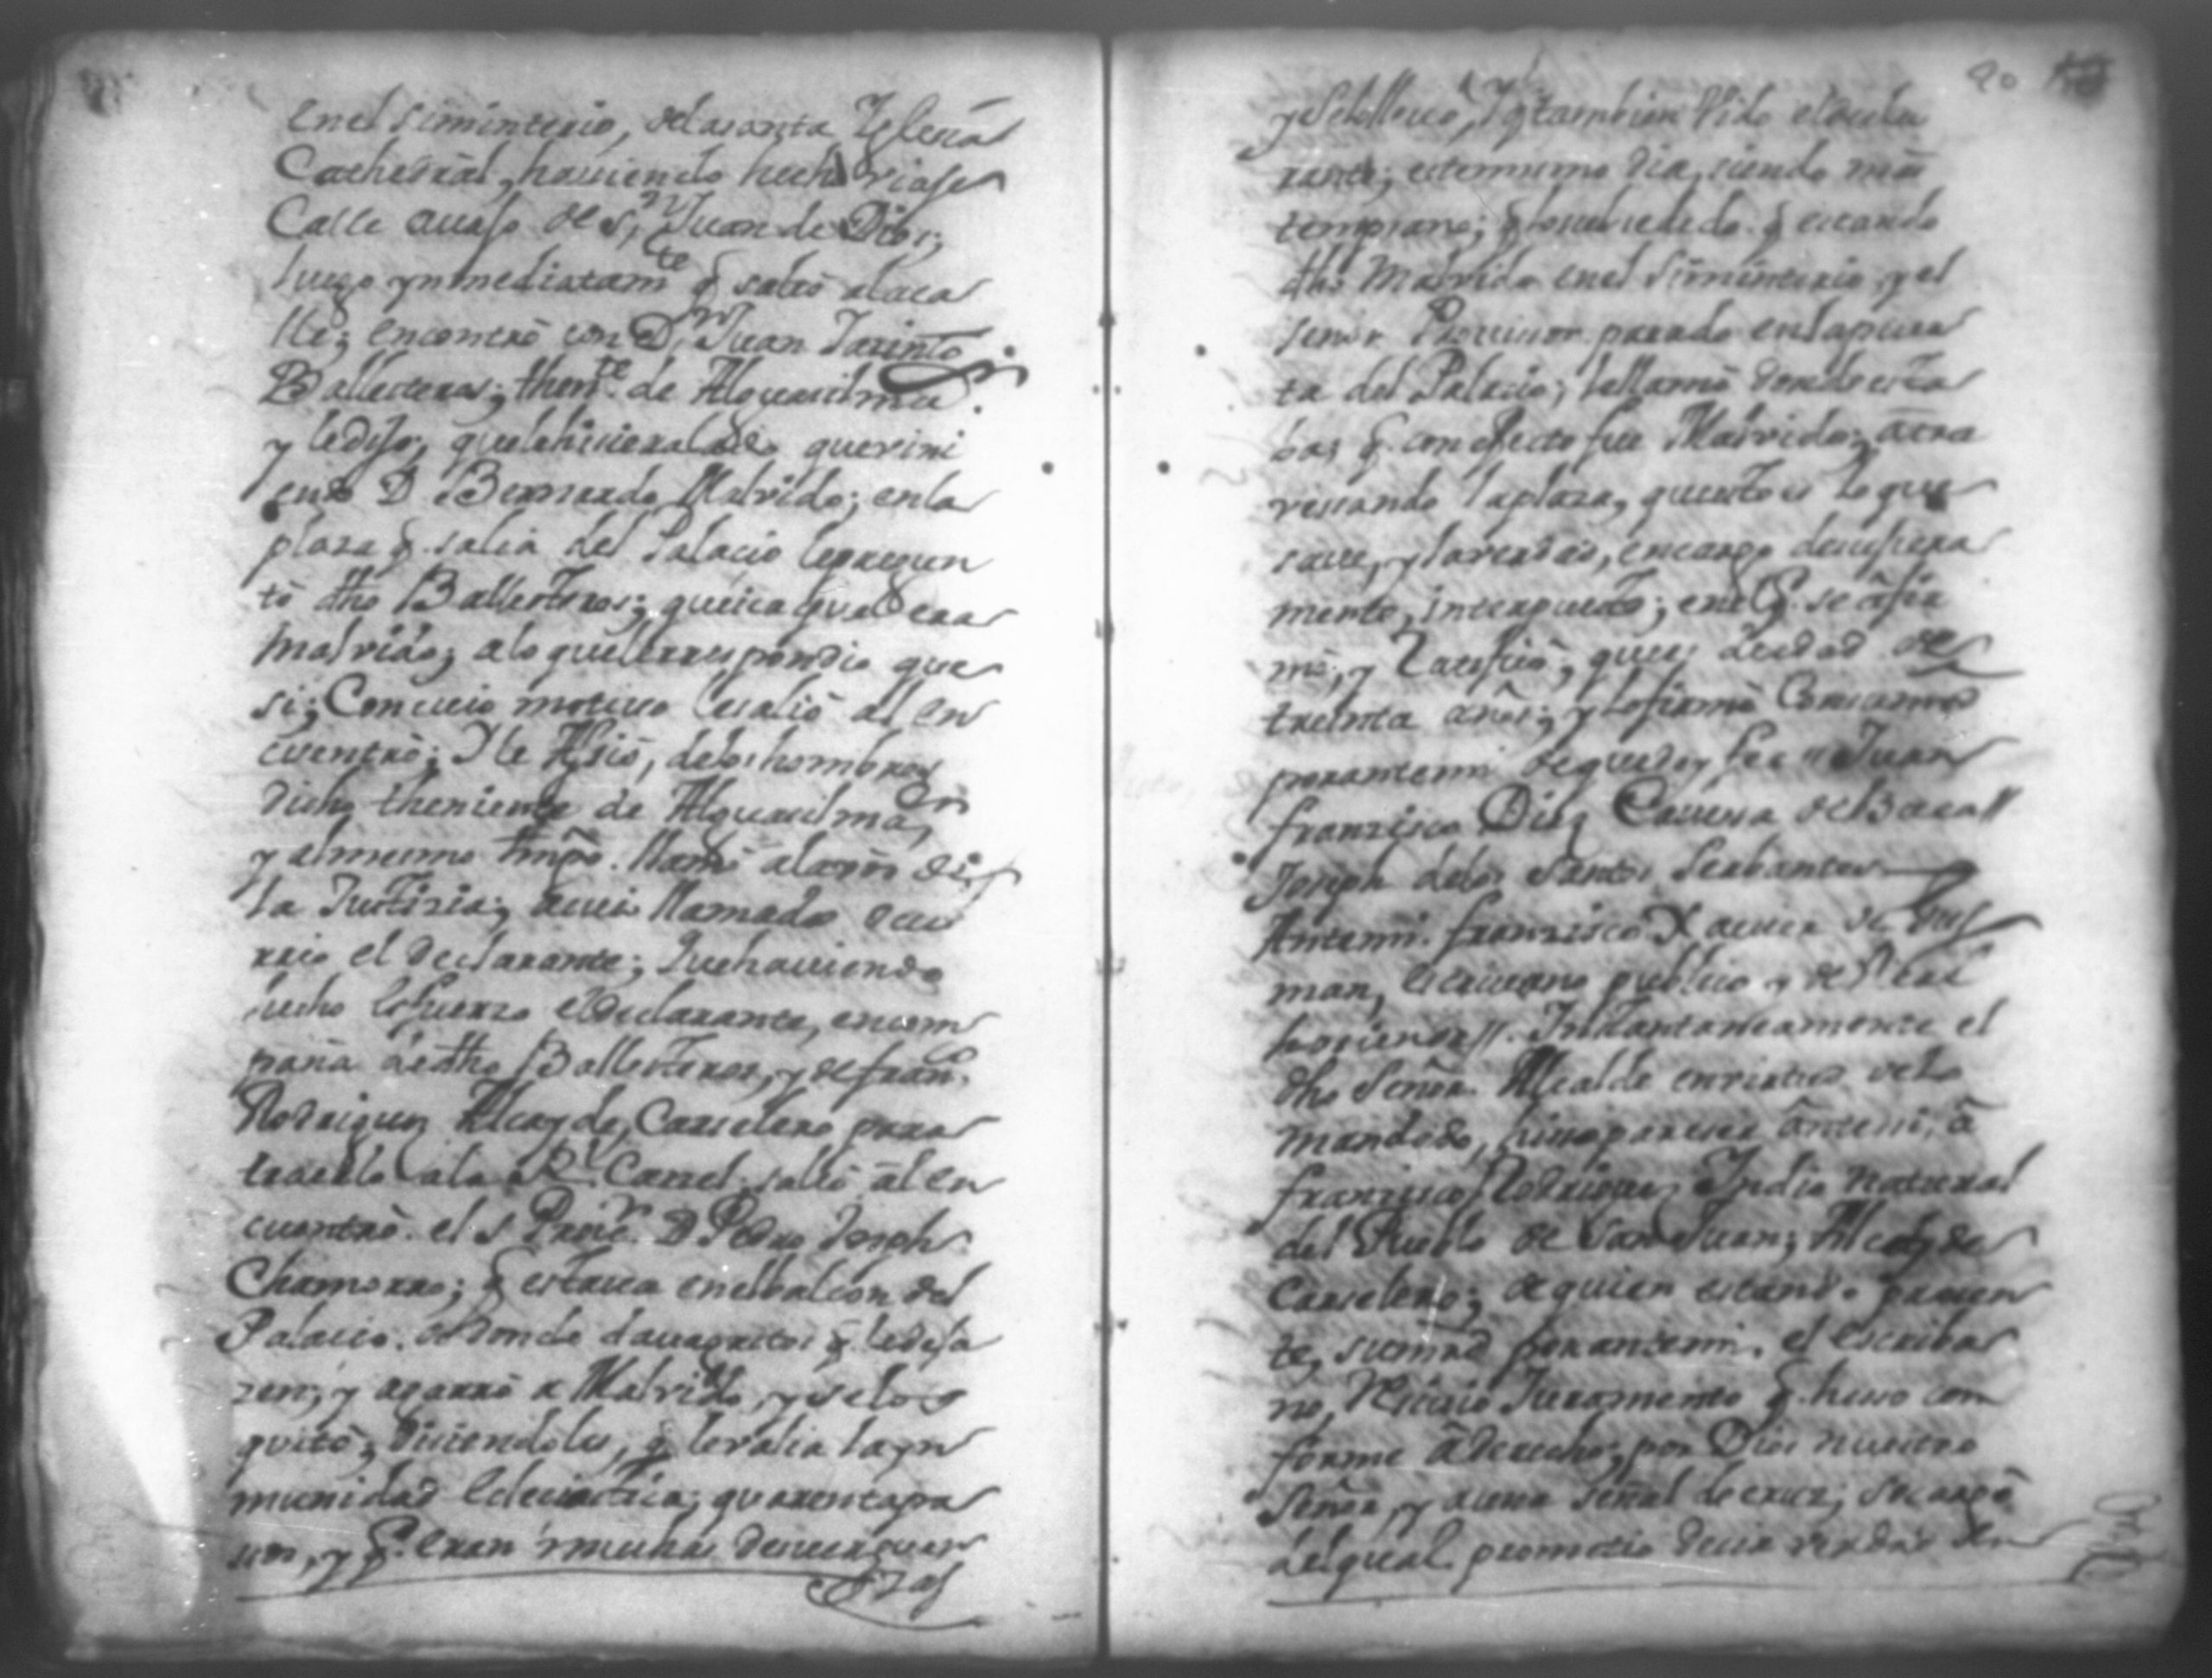 en el siminterio, de la santa Yglecia
Cathedral, hauiendo hecho viaje
Calle auajo de Sn Juan de Dios;
luego ynmediatamte q salió a la ca
lle; encontró con Dn Juan Jacinto
Ballesteros; thente de Alguacil mr
y le dijo, que
D Bernardo Malvido; en la
plaza q salia del Palacio le pregun
tó dho Ballesteros; que si aquel era
Malvido; a lo que le respondio que
si; Con cuio motiuo le salió al en
cuentro; Y le Asió, de los hombros
dicho theniente de Alguacil maor
y al mismo tmpo. llamó a la vos de
la Justizia; a cuio llamado ocu
rrio el declarante; Y hauiendo
hecho esfuerzo el declarante, en com
pañia de dho Ballesteros, y de franco
Rodriguez Alcayde, Carselero para
traerlo a la Rl Carsel, salió al en
cuentro el Sr Provr D Pedro Joseph
Chamorro; q estaua en el balcon del
Palacio. de donde daua gritos q le deja
zen; y agarró a Malvido, y se lo
quitó; diciendoles, q le valia la yn
munidad Eclesiastica;
y q. eran muchas desuerguen
zas
90
y se lo lleuó, Y q tambien Vido el decla
rante; este mismo dia, siendo mas
temprano; q lo sucedido q estando
dho Malvido en el siminterio, y el
señor Prouisor parado en la puer
ta del Palacio; lo llamó donde esta
ba; q. con efecto fue Malvido; atra
vesando la plaza, que esto es lo que
saue, y la verdad, en cargo de su jura
mento, interpuesto; en el q. se afir
mó, y Ratificó, que es de edad de
treinta años; y lo firmó Con su mrd
por ante mi de que doy fee // Juan
franzisco Diez Cauesa de Baca //
Joseph de los Santos Serbantes
Ante mi. franzisco Xauier de Gus
man, Escriuano publico y de Real
hazienda //. Ynstantaneamente el
dho Señor Alcalde en virtud de lo
mandado, hizo pareser ante si, á
franzisco Rodriguez Yndio natural
del Pueblo de San Juan; Alcayde
Carselero; de quien estando presen
te, su mrd por ante mi, el escriba
no, Reciuio Juramento q. hiso con
forme á derecho; por Dios nuestro
Señor, y a una señal de cruz; so cargo
del qual prometio decir verdad